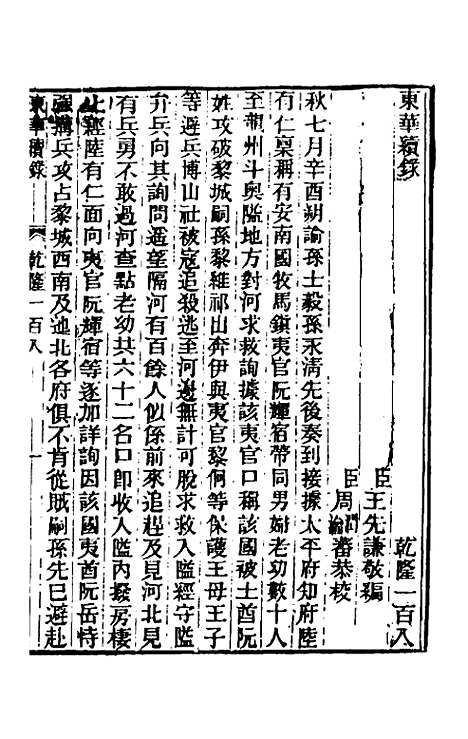 東華續錄
乾隆一百八
臣王先謙敬編
臣周潤蕃恭校
秋七月辛酉朔諭孫士毅孫永清先後奏到接據太平府知府陸
有仁稟稱有安南國牧馬鎮夷官阮輝宿帶同男婦老幼數十人
至龍州斗奥隘地方對河求救詢據該夷官口稱該國被土酋阮
姓攻破黎城嗣孫黎維祁山奔伊與夷官黎侗等保護王母王子
等避兵博山社被寇追殺逃至河邊無計可脫求救入隘經守隘
弁兵向其詢問遥望隔河有百餘人似係前來追趕及見河北見
有兵勇不敢過河查點老幼共六十二名口卽收入隘內撥房棲
止經陸有仁面向夷官阮輝宿等逐加詳詢因該國夷酋阮岳恃
強搆兵攻占黎城西南及迤北各府俱不肯從賊嗣孫先已避赴
東華續錄 乾隆一百八 一